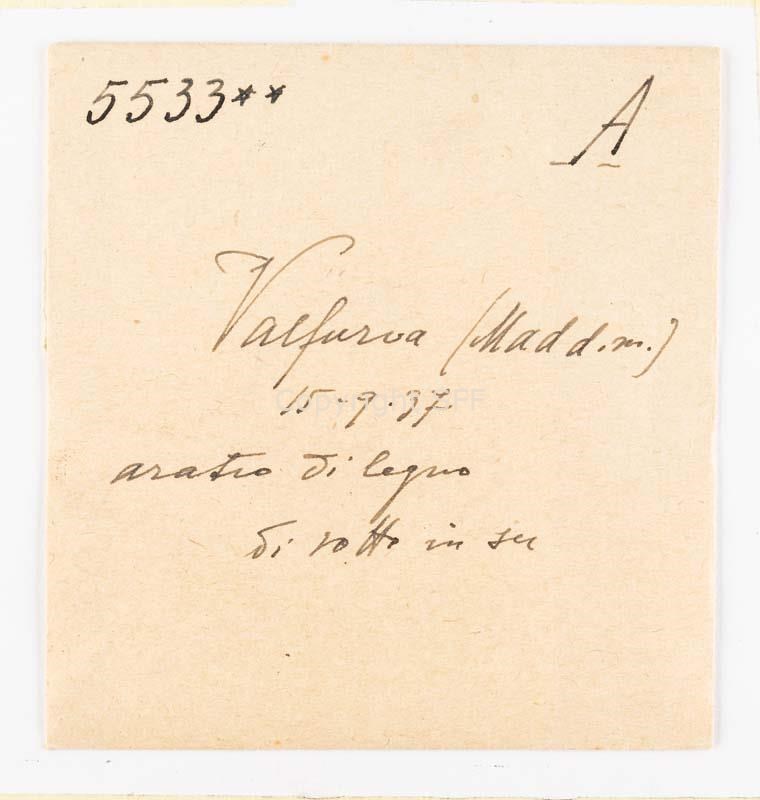 5533**
A
Valfurva (Madd.m.)
15-9-37.
Copyright BPF
aratro di legno
di sotto in su